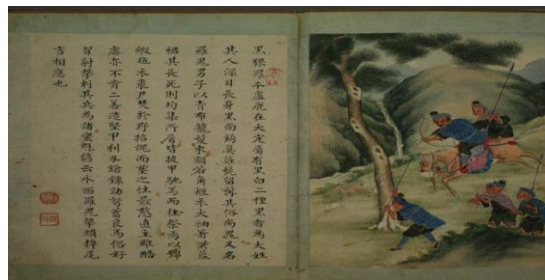 黑猓羅本盧鹿在大定屬有黑白二種黑者為大姓
其人深目長身黑面鈎鼻薙髭留髯其俗尚鬼又名
羅鬼男子以青布籠髮束額若角短衣大袖著藍
裙其長死則均集所屬皆披甲馳馬而往祭焉以錦
緞毡衣裹尸焚於野招魂而葬之性最憨直主雖酷
虐亦不肯二善造堅甲利刃鎗鏢勁弩蓄良馬俗好
習射擊刺其兵為諸蠻冠諺云水西羅鬼擊頭掉尾
言相應也